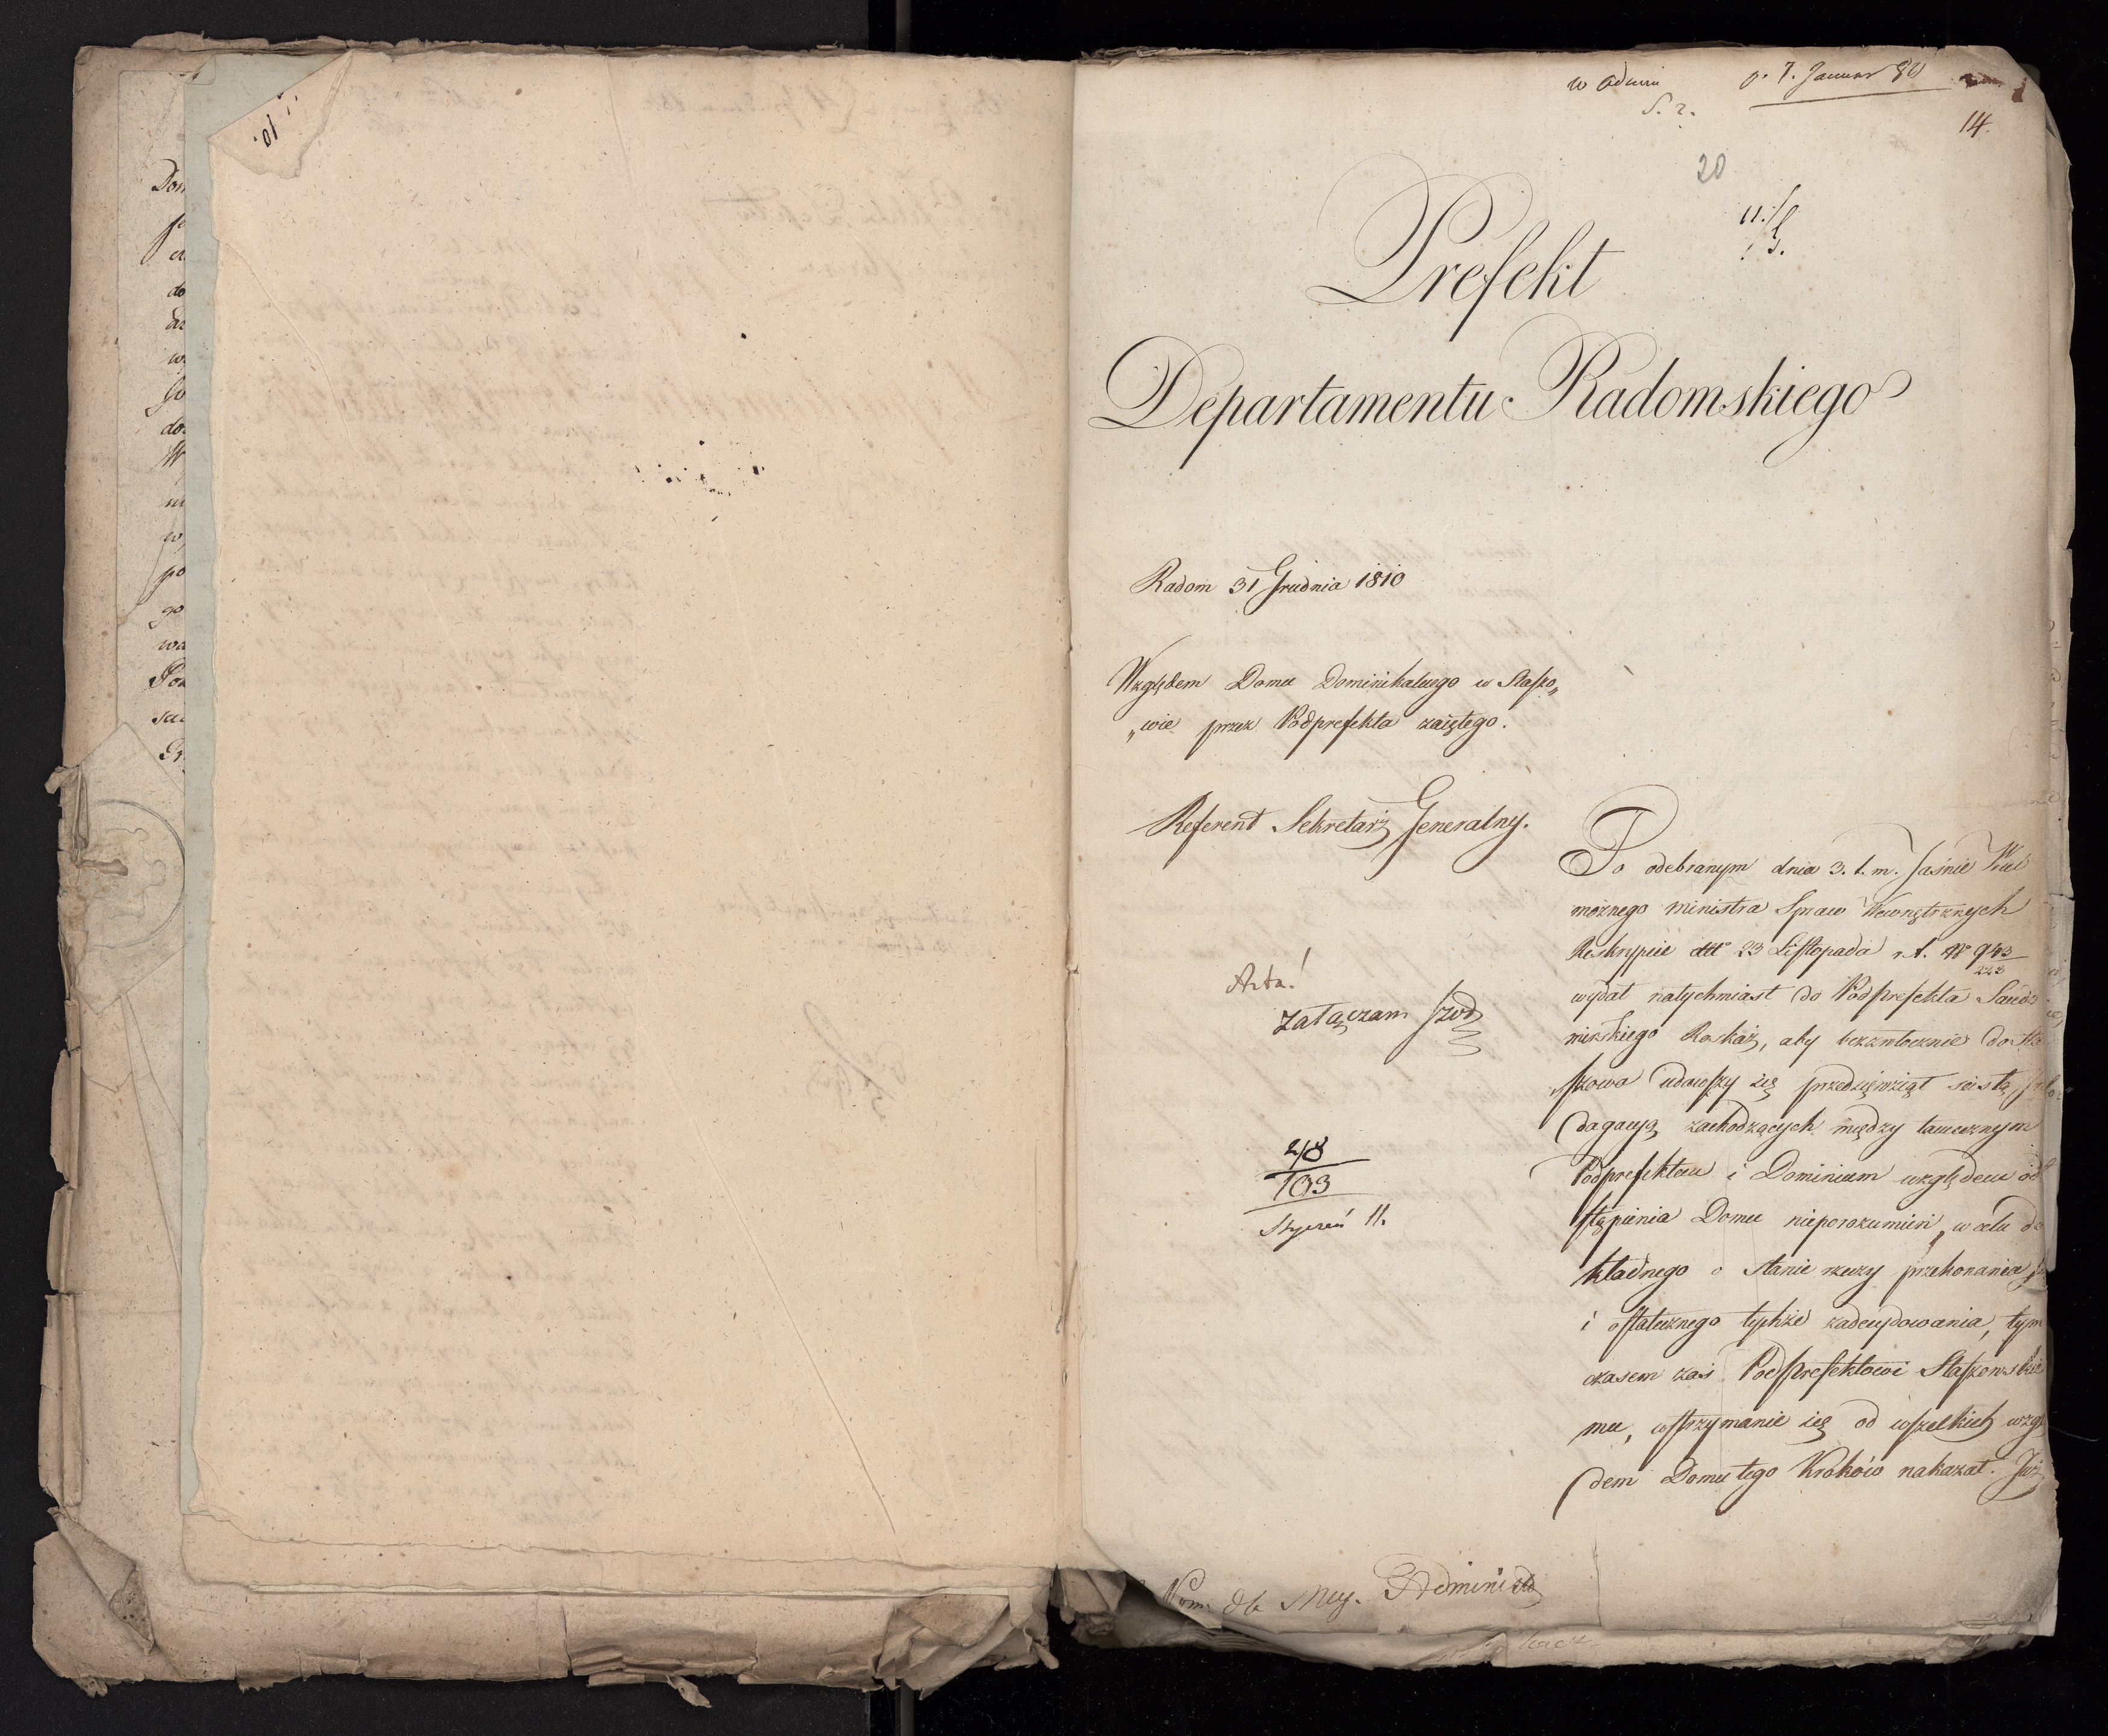 10.
Dom
do
w
do
W
w
po
go
wa
w Admi
7. Januar
14.
20
Prefekt
Departamentu Radomskiego
Radom 31 Grudnia 1810
Względem Domu Dominikalnego w Staszo„
„wie przez Podprefekta zaiętego.
Referent Sekretarz Generalny.
Po odebranym dnia 3. t. m. Jaśnie Wiel
możnego Ministra Spraw Wewnętrznych
Reskrypcie dtto 23 Listopada r. t. No 943/223
wydał natychmiast do Podprefekta Sando
mirskiego Rozkaz, aby bezzwłocznie do Sta
szowa udawszy się przedsięwziął ścisłą
dagacyą zachodzących między tamecznym
Podprefektem i Dominium względem od
stąpienia Domu nieporozumień, w celu do
kładnego o stanie rzeczy przekonania
i ostatecznego tychże zadecydowania, tym
czasem zaś Podprefektowi Staszowskie
mu, wstrzymanie się od wszelkich wzglę
dem Domu tego Kroków nakazał. Już
Acta!
załączam
48
103
Styczeń 11.